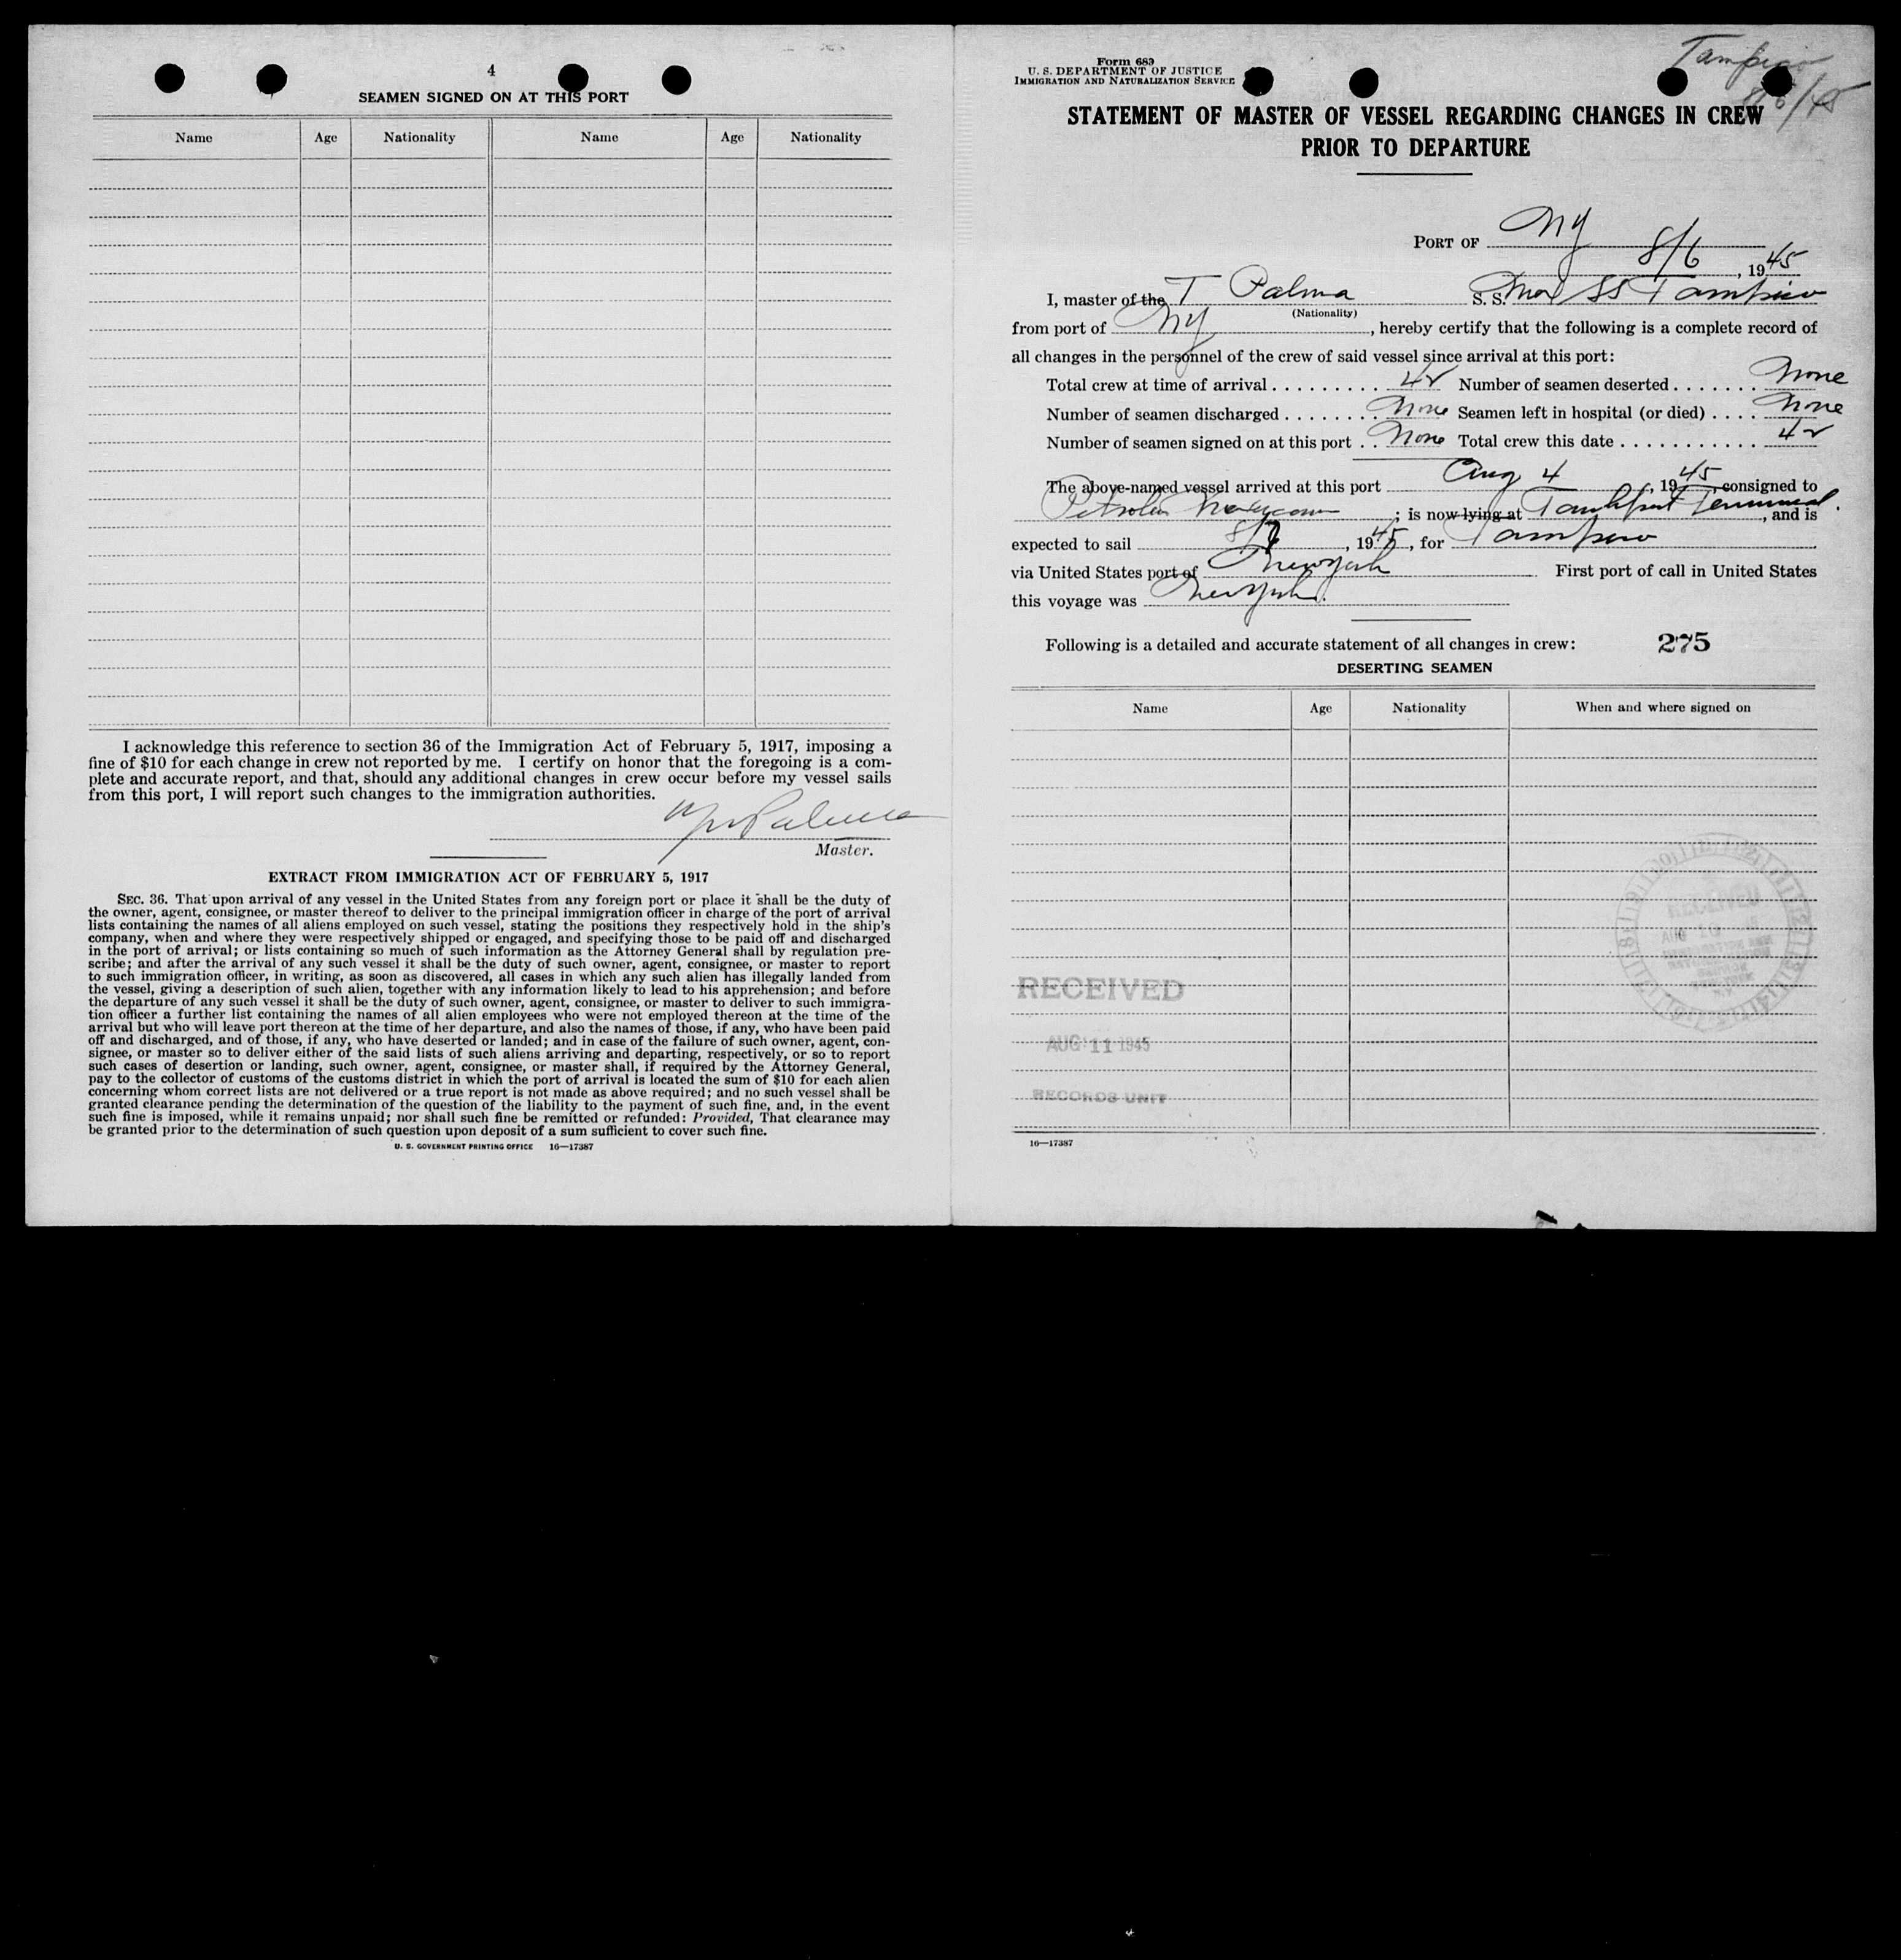 4
SEAMEN SIGNED ON AT THIS PORT
Name Age Nationality Name Age Nationality
I acknowledge this reference to section 36 of the Immigration Act of February 5, 1917, imposing a
fine of $10 for each change in crew not reported by me. I certify on honor that the foregoing is a com-
plete and accurate report, and that, should any additional changes in crew occur before my vessel sails
from this port, I will report such changes to the immigration authorities.
Palma
Master.
EXTRACT FROM IMMIGRATION ACT OF FEBRUARY 5, 1917
SEC. 36. That upon arrival of any vessel in the United States from any foreign port or place it shall be the duty of
the owner, agent, consignee, or master thereof to deliver to the principal immigration officer in charge of the port of arrival
lists containing the names of all aliens employed on such vessel, stating the positions they respectively hold in the ship's
company, when and where they were respectively shipped or engaged, and specifying those to be paid off and discharged
in the port of arrival; or lists containing so much of such information as the Attorney General shall by regulation pre-
scribe; and after the arrival of any such vessel it shall be the duty of such owner, agent, consignee, or master to report
to such immigration officer, in writing, as soon as discovered, all cases in which any such alien has illegally landed from
the vessel, giving a description of such alien, together with any information likely to lead to his apprehension; and before
the departure of any such vessel it shall be the duty of such owner, agent, consignee, or master to deliver to such immigra-
tion officer a further list containing the names of all alien employees who were not employed thereon at the time of the
arrival but who will leave port thereon at the time of her departure, and also the names of those, if any, who have been paid
off and discharged, and of those, if any, who have deserted or landed; and in case of the failure of such owner, agent, con-
signee, or master so to deliver either of the said lists of such aliens arriving and departing, respectively, or so to report
such cases of desertion or landing, such owner, agent, consignee, or master shall, if required by the Attorney General,
pay to the collector of customs of the customs district in which the port of arrival is located the sum of $10 for each alien
concerning whom correct lists are not delivered or a true report is not made as above required; and no such vessel shall be
granted clearance pending the determination of the question of the liability to the payment of such fine, and, in the event
such fine is imposed, while it remains unpaid; nor shall such fine be remitted or refunded: Provided, That clearance may
be granted prior to the determination of such question upon deposit of a sum sufficient to cover such fine.
U. S. GOVERNMENT PRINTING OFFICE 16—17387
Form 689
U. S. DEPARTMENT OF JUSTICE
IMMIGRATION AND NATURALIZATION SERVICE
Tampico
8/6/45
STATEMENT OF MASTER OF VESSEL REGARDING CHANGES IN CREW
PRIOR TO DEPARTURE
PORT OF NY
8/6, 1945
I, master of the T Palma S. S. Mex SS Tampico
(Nationality)
from port of NY, hereby certify that the following is a complete record of
all changes in the personnel of the crew of said vessel since arrival at this port:
Total crew at time of arrival . . . . . . . . . 42 Number of seamen deserted . . . . . . . None
Number of seamen discharged . . . . . . . . None Seamen left in hospital (or died) . . . . None
Number of seamen signed on at this port . . None Total crew this date . . . . . . . . . . . 42
The above-named vessel arrived at this port Aug 4, 1945, consigned to
; is now lying at Tankport Terminal, and is
expected to sail 8/7, 1945, for Tampico
via United States port of New York First port of call in United States
this voyage was New York.
Following is a detailed and accurate statement of all changes in crew: 275
DESERTING SEAMEN
Name Age Nationality When and where signed on
RECEIVED
AUG 10
RECEIVED
AUG 11 1945
RECORDS UNIT
16—17387